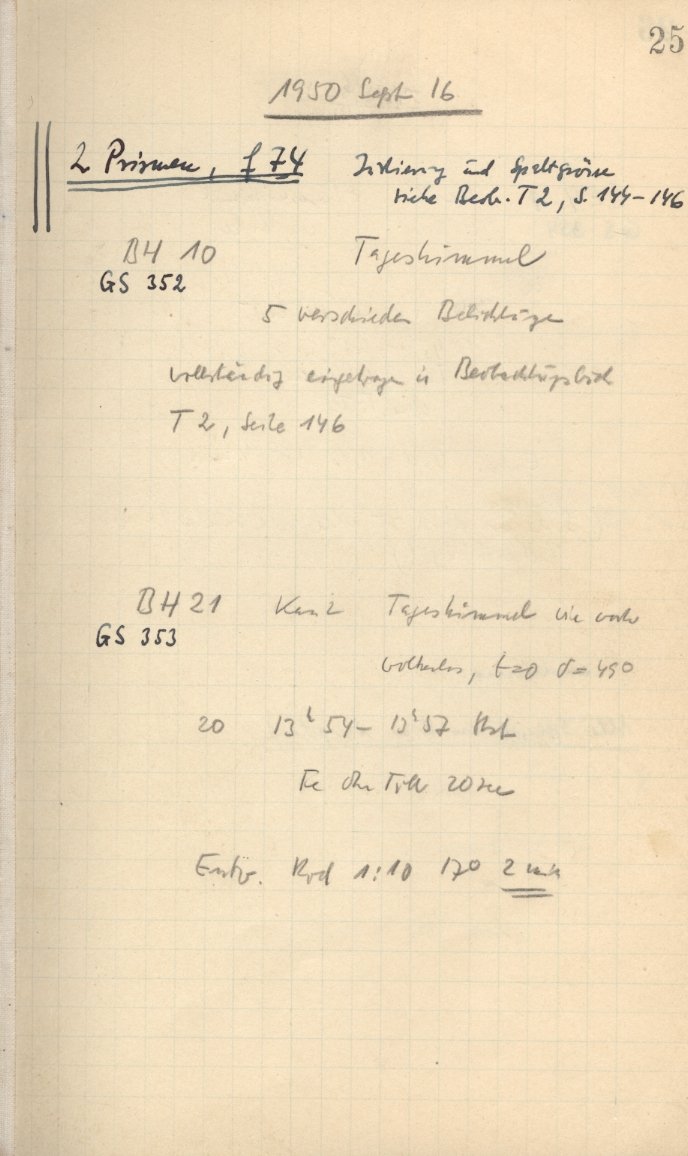 25
1950 Sept 16
2 Prismen, f 74
Justierung und Spaltgrösse
siehe Beob. T 2, S. 144–146
BH 10 Tageshimmel
GS 352
5 verschieden Belichtungen
vollständig eingetragen in Beobachtungsbuch
T 2, Seite 146
BH 21 Tageshimmel wie vorher
GS 353
wolkenlos, t=0 δ=490
20 13h 54 – 13h 57
Fe ohne 20 sec
Entw. Rod 1:10 17° 2 min